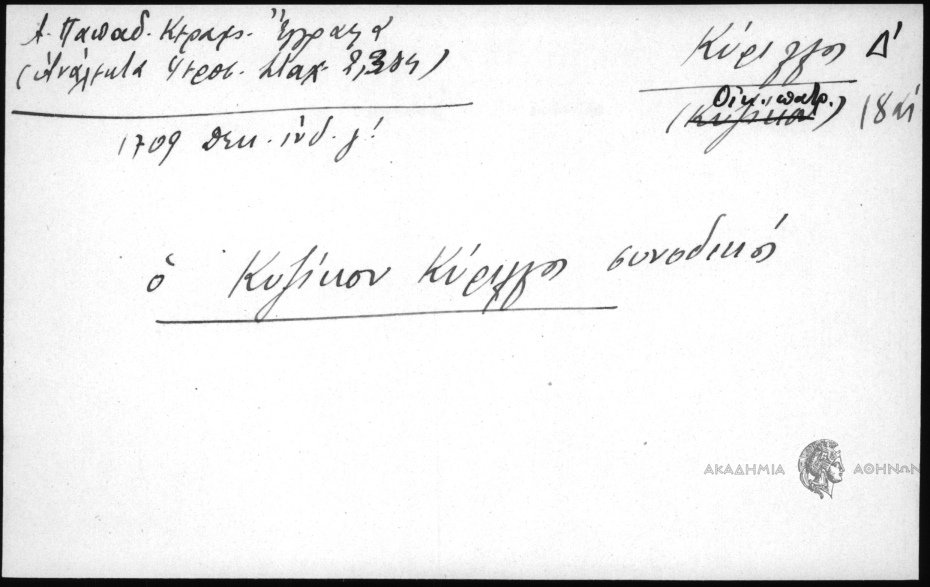 Α. Παπαδ. Κεραμ. Ἔγγραφα
(Ἀνάλεκτα Ἱεροσ. Σταχ. 2, 384)
Κύριλλος Δ'
Οἰκ. πατρ.
(Κυζίκου) 18 αἰ
1709 Δεκ. ἰνδ. γ!
ὁ Κυζίκου Κύριλλος συνοδικός
ΑΚΑΔΗΜΙΑ ΑΘΗΝΩΝ